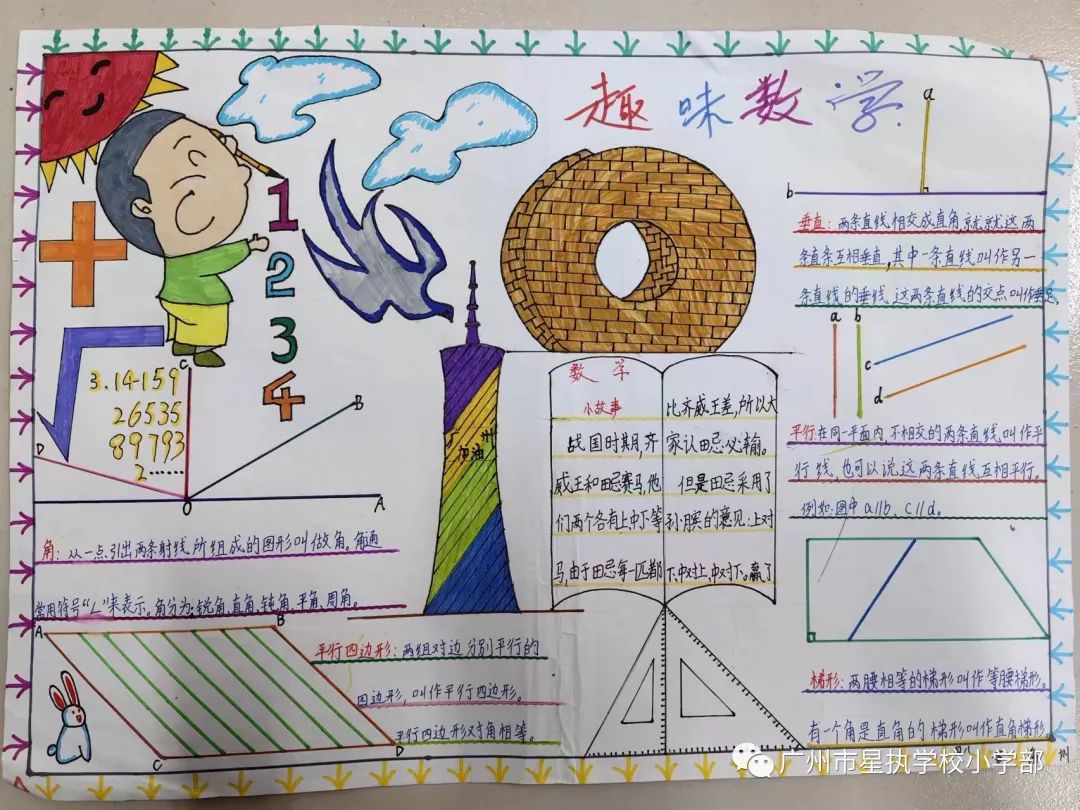 趣味数学
1
2
3
4
3.14159
26535
89793
2……
C
B
D
O
A
角：从一点引出两条射线所组成的图形叫做角。角通
常用符号“∠”来表示。角分为：锐角、直角、钝角、平角、周角。
A
B
C
D
平行四边形：两组对边分别平行的
四边形，叫作平行四边形。
平行四边形对角相等。
广州
加油
数学
小故事
战国时期，齐
威王和田忌赛马，他
们两个各有上中下等
马，由于田忌每一匹都
比齐威王差，所以大
家认田忌必输。
但是田忌采用了
孙膑的意见：上对
下，中对上，中对下。赢了
a
b
垂直：两条直线相交成直角，就就这两
条直条互相垂直，其中一条直线叫作另一
条直线的垂线，这两条直线的交点叫作垂足。
a
b
c
d
平行：在同一平面内，不相交的两条直线，叫作平
行线，也可以说这两条直线互相平行。
例如：图中a∥b、c∥d。
梯形：两腰相等的梯形叫作等腰梯形。
有一个角是直角的梯形叫作直角梯形
广州市星执学校小学部